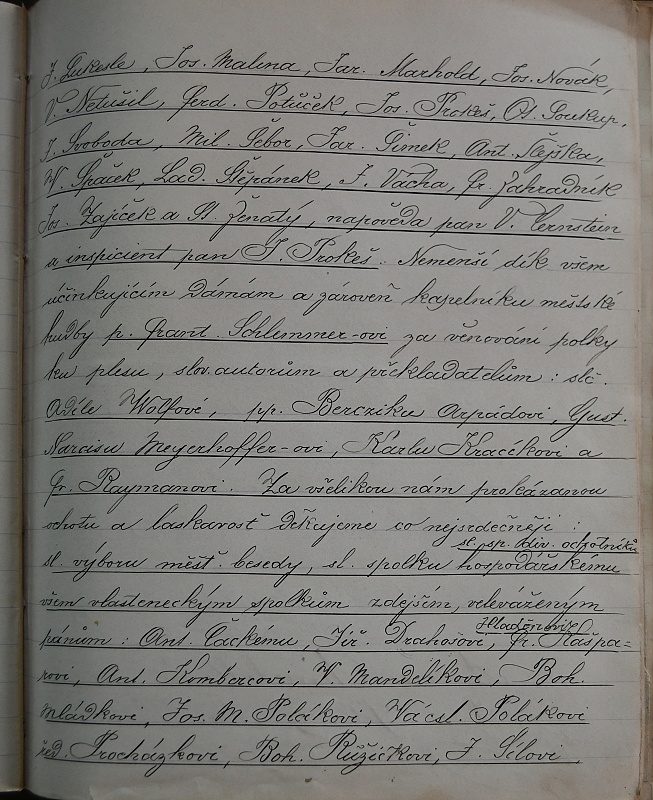 J. Lukesle, Jos. Malina, Jar. Marhold, Jos. Novák,
V. Netušil, Ferd. Potůček, Jos. Prokeš, Ot. Soukup,
J. Svoboda, Mil. Šebor, Jar. Šimek, Ant. Šlejška,
V. Špaček, Lad. Štěpánek, J. Vácha, Fr. Zahradník
Jos. Zajíček a St. Ženatý, napověda pan V. Bernstein
a inspicient pan J. Prokeš. Nemenší dík všem
účinkujícím dámám a zároveň kapelníku městské
hudby p. Frant. Schlemmer-ovi za věnování polky
ku plesu, slov. autorům a překladatelům: slč.
Adéle Wolfové, pp. Bercziku Arpádovi, Gust.
Narcisu Meyerhoffer-ovi, Karlu Kracíkovi a
Fr. Raymanovi. Za všelikou nám prokázanou
ochotu a laskavosť děkujeme co nejsrdečněji:
sl. sp. div. ochotníků
sl. výboru měšť. besedy, sl. spolku hospodářskému
všem vlasteneckým spolkům zdejším, veleváženým
pánům: Ant. Čackému, Jiř. Drahošovi, Fr. Kašpa=
rovi, Ant. Hombercovi, V. Mandelíkovi, Boh.
Mládkovi, Jos. M. Polákovi, Václ. Polákovi
řed. Procházkovi, Boh. Růžičkovi, J. Sílovi,